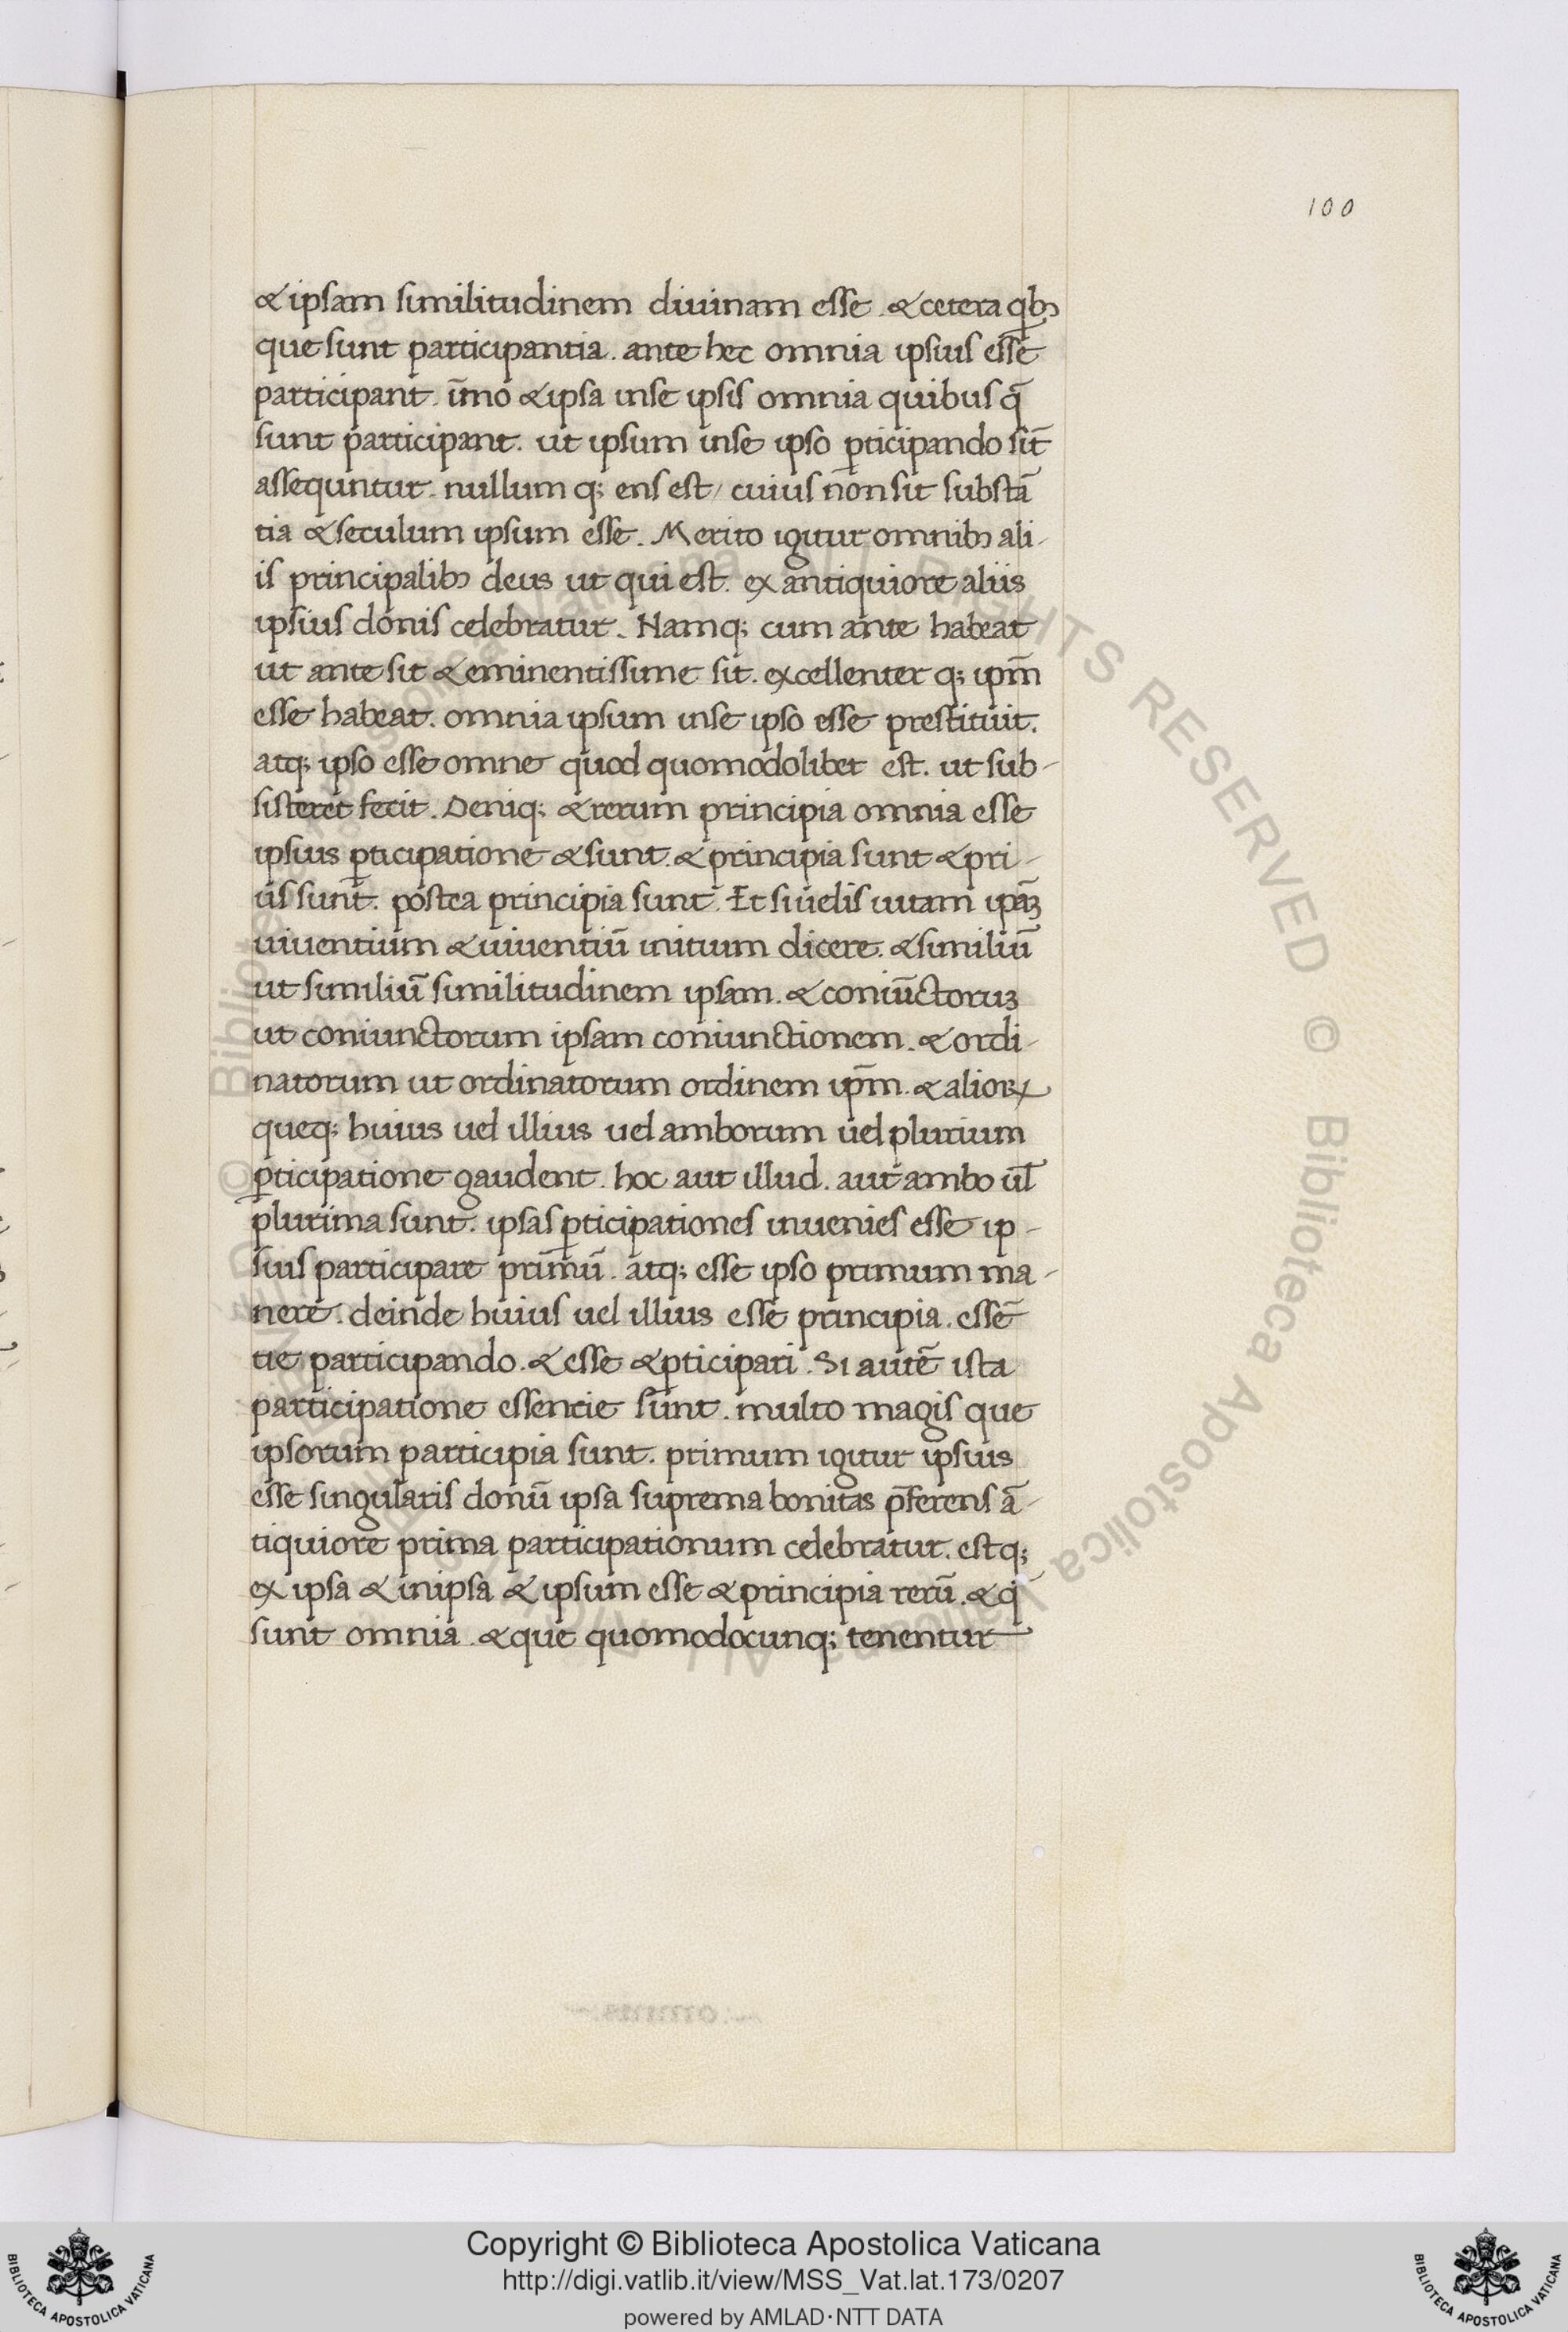 100
& ipsam similitudinem diuinam esse. & cetera qb᷒
que sunt participantia. ante hec omnia ipsius esse
participant. īmo & ipsa inse ipsis omnia quibus q̄
sunt participant. ut ipsum inse ipso ꝑticipando sīt
assequntur. nullum q; ens est / cuius non sit substā
tia & seculum ipsum esse. Merito igitur omnibꝰ ali-
is principalibꝰ deus ut qui est. ex antiquiore aliis
ipsius donis celebratur. Namq; cum ante habeat
ut ante sit & eminentissime sit. excellenter q; ip̄m
esse habeat. omnia ipsum inse ipso esse prestituit.
atq; ipso esse omne quod quomodolibet est. ut sub-
sisteret fecit. Deniq; & rerum principia omnia esse
ipsius ꝑticipatione & sunt. & principia sunt & pri-
us sunt. postea principia sunt. Et si uelis uitam ip̄aꝫ
uiuentium & uiuentiū initium dicere. & similiū
ut similiū similitudinem ipsam. & coniūctoruꝫ
ut coniunctorum ipsam coniunctionem. & ordi-
natorum ut ordinatorum ordinem ip̄m. & alioꝝ
queq; huius uel illius uel amborum uel plurium
ꝑticipatione gaudent. hoc aut illud. aut ambo ul̄
plurima sunt. ipsas ꝑticipationes inuenies esse ip-
sius participare primū. atq; esse ipso primum ma-
nere. deinde huius uel illius esse principia. essē
tie participando. & esse & ꝑticipari. Si autē ista
participatione essentie sunt. multo magis que
ipsorum participia sunt. primum igitur ipsius
esse singularis donū ipsa suprema bonitas p̄ferens ā-
tiquiore prima participationum celebratur. estq;
ex ipsa & inipsa & ipsum esse & principia rerū. & q̄
sunt omnia. & que quomodocunq; tenentur
© Biblioteca Apostolica Vaticana ALL RIGHTS RESERVED © Biblioteca Apostolica Vaticana ALL RIGHTS RESERVED
Copyright © Biblioteca Apostolica Vaticana
http://digi.vatlib.it/view/MSS_Vat.lat.173/0207
powered by AMLAD·NTT DATA
BIBLIOTECA APOSTOLICA VATICANA
BIBLIOTECA APOSTOLICA VATICANA